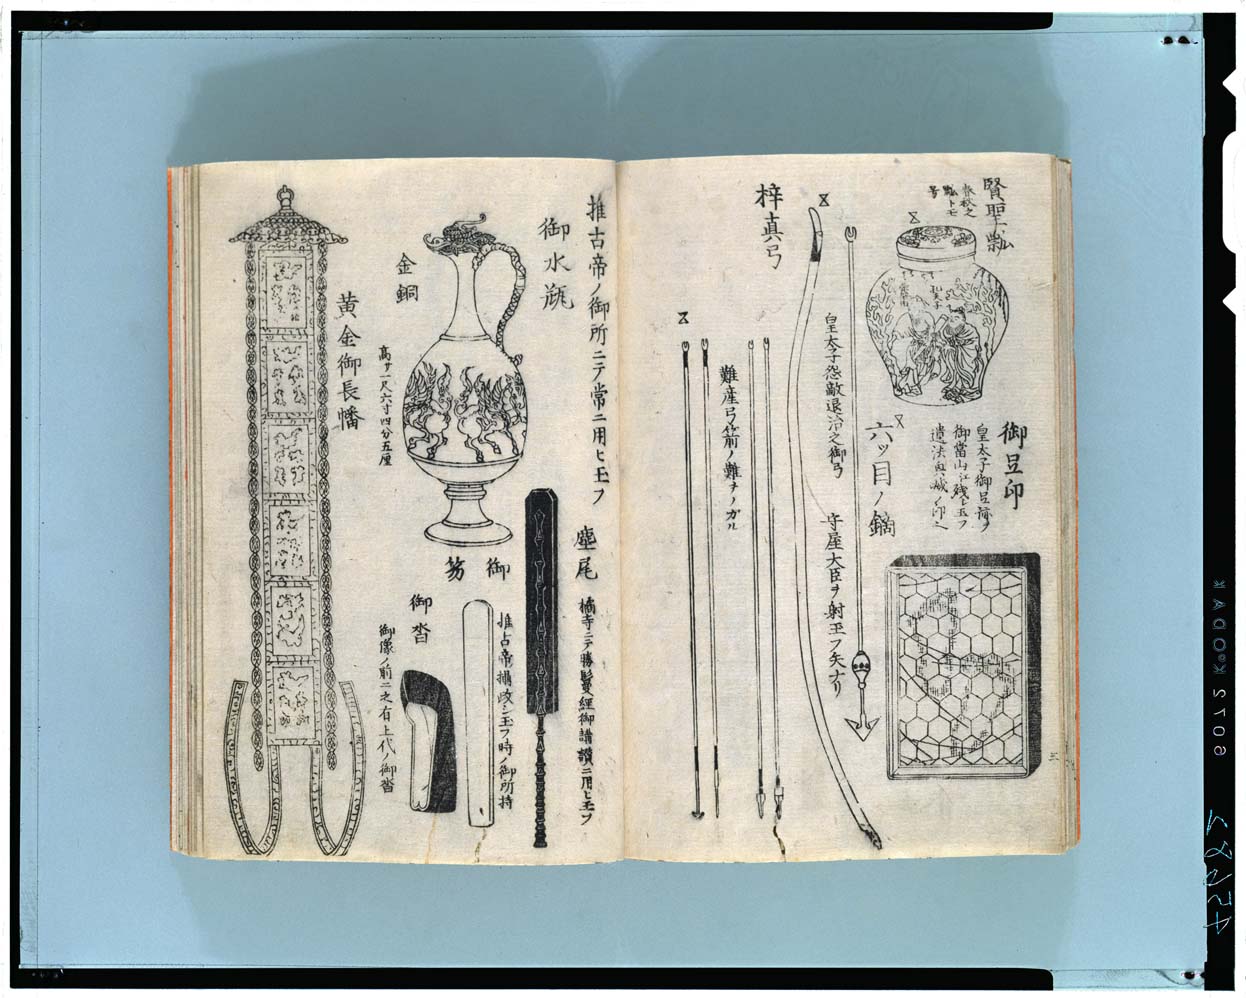 賢聖瓢
春秋之
瓢トモ
号
孔夫子
御足印
皇太子御足跡ヲ
御當山ニ残シ玉フ
遺法興滅ノ印也
六ツ目ノ鏑
守屋大臣ヲ射玉フ矢ナリ
皇太子怨敵退治之御弓
梓真弓
難産弓箭ノ難ヲノガル
三
推古帝ノ御所ニテ常ニ用ヒ玉フ
御水瓶
金銅
高サ一尺六寸四分五厘
塵尾
橘寺ニテ勝鬘經御講讃ニ用ヒ玉フ
御笏
推古帝攝政シ玉フ時ノ御所持
御沓
御像ノ前ニ之有上代ノ御沓
黄金御長幡
6072 KODAK